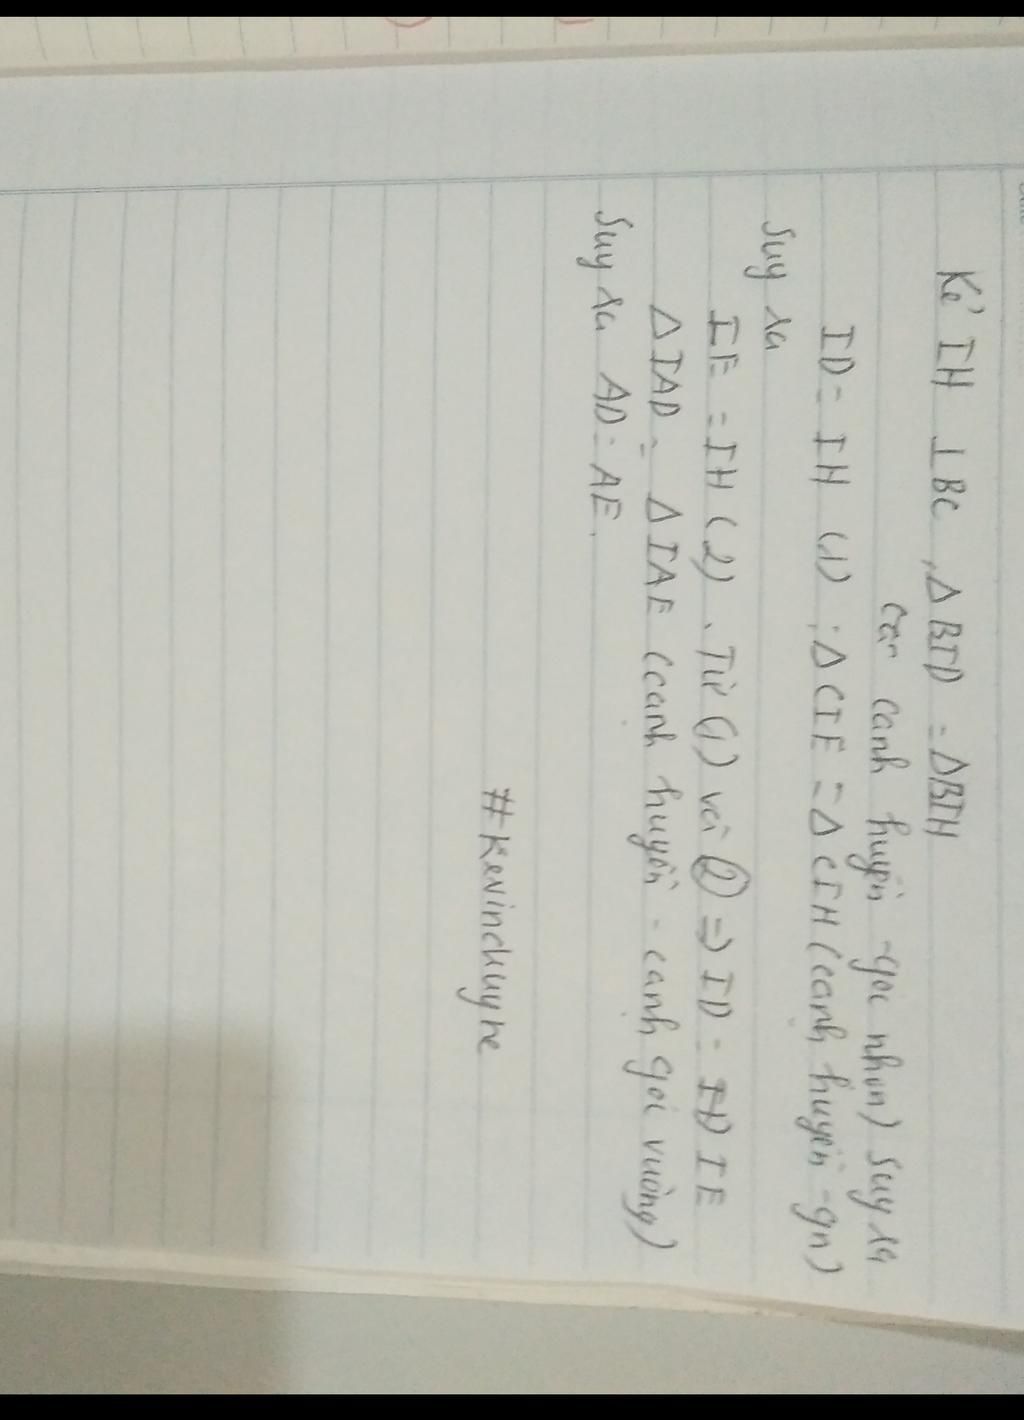 Kẻ IH ⊥BC, ΔBID = ΔBIH
cạnh huyền -góc nhọn) suy ra
ID = IH (1) ; ΔCIE = ΔCIH (cạnh huyền -gn)
suy ra
IE = IH (2). Từ (1) và (2) => ID = IE
ΔIAD = ΔIAE (cạnh huyền - cạnh gói vuông)
Suy ra AD = AE.
#Kevinchuyne